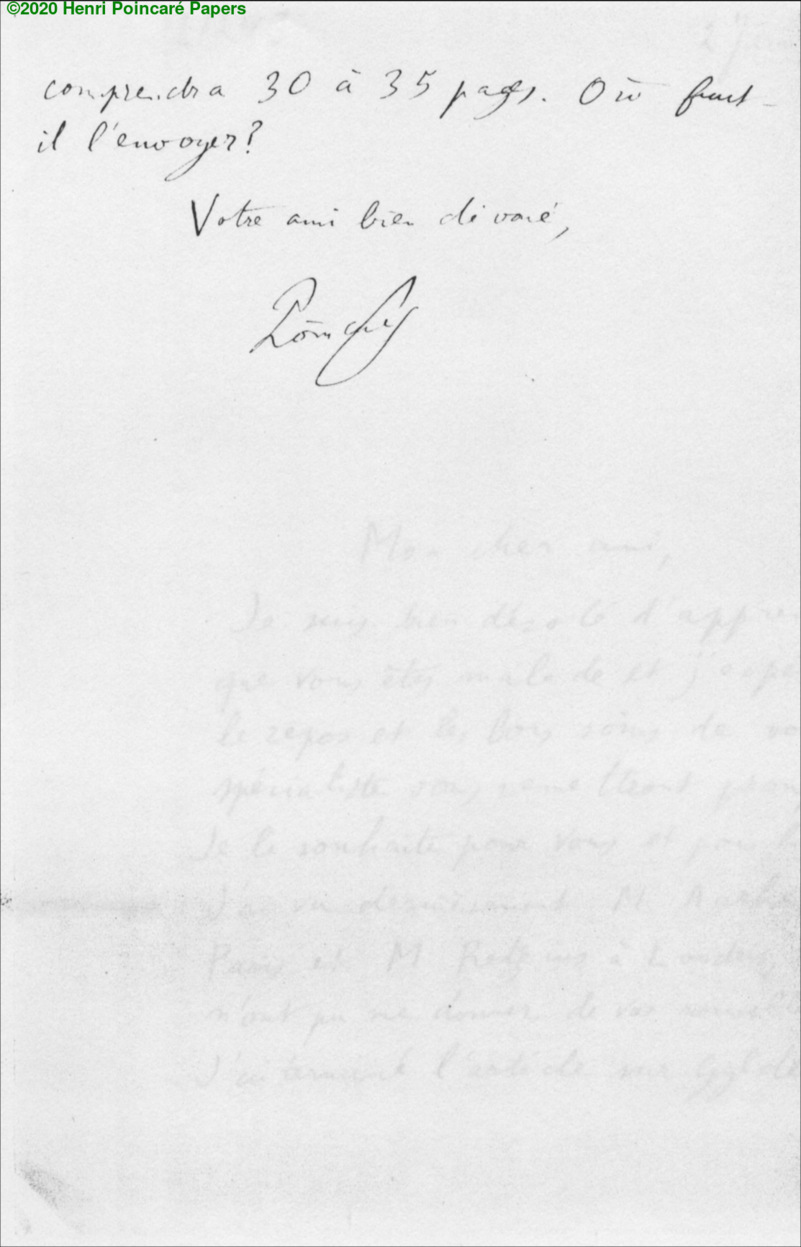 ©2020 Henri Poincaré Papers
comprendra 30 à 35 pages. Où faut-
il l'envoyer?
Votre ami bien dévoué,
Poincaré
Mon cher ami,
Je suis bien désolé d'appren
que vous êtes malade et j'espè
le repos et les bons soins de vo
spécialiste vous remettront prom
Je le souhaite pour vous et pour l
J'ai vu dernièrement M.
Paris et M. Retzius à Londres,
n'ont pu me donner de vos nouvelle
J'ai terminé l'article sur Gyldé